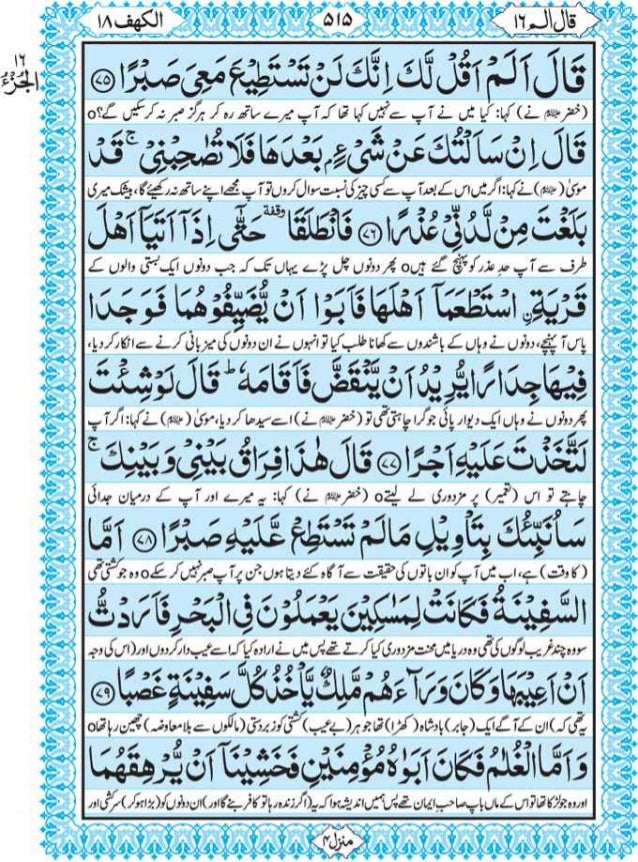 قال الم ١٦
٥١٥
الكهف ١٨
١٦
الجزء
قَالَ اَلَمْ اَقُلْ لَّكَ اِنَّكَ لَنْ تَسْتَطِيْعَ مَعِيَ صَبْرًا ﴿۷۵﴾
(خضر علیہ السلام نے) کہا: کیا میں نے آپ سے نہیں کہا تھا کہ آپ میرے ساتھ رہ کر ہرگز صبر نہ کر سکیں گے؟o
قَالَ اِنْ سَاَلْتُكَ عَنْ شَيْءٍۭ بَعْدَهَا فَلَا تُصٰحِبْنِيْ ۚ قَدْ
موسٰی (علیہ السلام) نے کہا: اگر میں اس کے بعد آپ سے کسی چیز کی نسبت سوال کروں تو آپ مجھے اپنے ساتھ نہ رکھیئے گا، بیشک میری
بَلَغْتَ مِنْ لَّدُنِّيْ عُذْرًا ﴿۷۶﴾ فَانْطَلَقَا ٝ حَتّٰۤى اِذَاۤ اَتَيَاۤ اَهْلَ
طرف سے آپ حدِ عذر کو پہنچ گئے ہیںo پھر دونوں چل پڑے یہاں تک کہ جب دونوں ایک بستی والوں کے
قَرْيَةِ ِ۟اسْتَطْعَمَاۤ اَهْلَهَا فَاَبَوْا اَنْ يُّضَيِّفُوْهُمَا فَوَجَدَا
پاس آ پہنچے، دونوں نے وہاں کے باشندوں سے کھانا طلب کیا تو انہوں نے ان دونوں کی میزبانی کرنے سے انکار کر دیا،
فِيْهَا جِدَارًا يُّرِيْدُ اَنْ يَّنْقَضَّ فَاَقَامَهٗ ؕ قَالَ لَوْ شِئْتَ
پھر دونوں نے وہاں ایک دیوار پائی جو گرا چاہتی تھی تو (خضر علیہ السلام نے) اسے سیدھا کر دیا، موسٰی (علیہ السلام) نے کہا: اگر آپ
لَتَّخَذْتَ عَلَيْهِ اَجْرًا ﴿۷۷﴾ قَالَ هٰذَا فِرَاقُ بَيْنِيْ وَبَيْنِكَ ۚ
چاہتے تو اس (تعمیر) پر مزدوری لے لیتےo (خضر علیہ السلام نے) کہا: یہ میرے اور آپ کے درمیان جدائی
سَاُنَبِّئُكَ بِتَاْوِيْلِ مَا لَمْ تَسْتَطِعْ عَّلَيْهِ صَبْرًا ﴿۷۸﴾ اَمَّا
(کا وقت) ہے، اب میں آپ کو ان باتوں کی حقیقت سے آگاہ کئے دیتا ہوں جن پر آپ صبر نہیں کر سکےo وہ جو کشتی تھی
السَّفِيْنَةُ فَكَانَتْ لِمَسٰكِيْنَ يَعْمَلُوْنَ فِي الْبَحْرِ فَاَرَدْتُّ
سو وہ چند غریب لوگوں کی تھی وہ دریا میں محنت مزدوری کیا کرتے تھے پس میں نے ارادہ کیا کہ اسے عیب دار کر دوں اور (اس کی وجہ
اَنْ اَعِيْبَهَا وَكَانَ وَرَآءَهُمْ مَّلِكٌ يَّاْخُذُ كُلَّ سَفِيْنَةٍ غَصْبًا ﴿۷۹﴾
یہ تھی کہ) ان کے آگے ایک (جابر) بادشاہ (کھڑا) تھا جو ہر (بے عیب) کشتی کو زبردستی (مالکوں سے بلامعاوضہ) چھین رہا تھاo
وَاَمَّا الْغُلٰمُ فَكَانَ اَبَوٰهُ مُؤْمِنَيْنِ فَخَشِيْنَاۤ اَنْ يُّرْهِقَهُمَا
اور وہ جو لڑکا تھا تو اس کے ماں باپ صاحبِ ایمان تھے پس ہمیں اندیشہ ہوا کہ یہ (اگر زندہ رہا تو کافر بنے گا اور) ان دونوں کو (بڑا ہو کر) سرکشی اور
منزل ۴